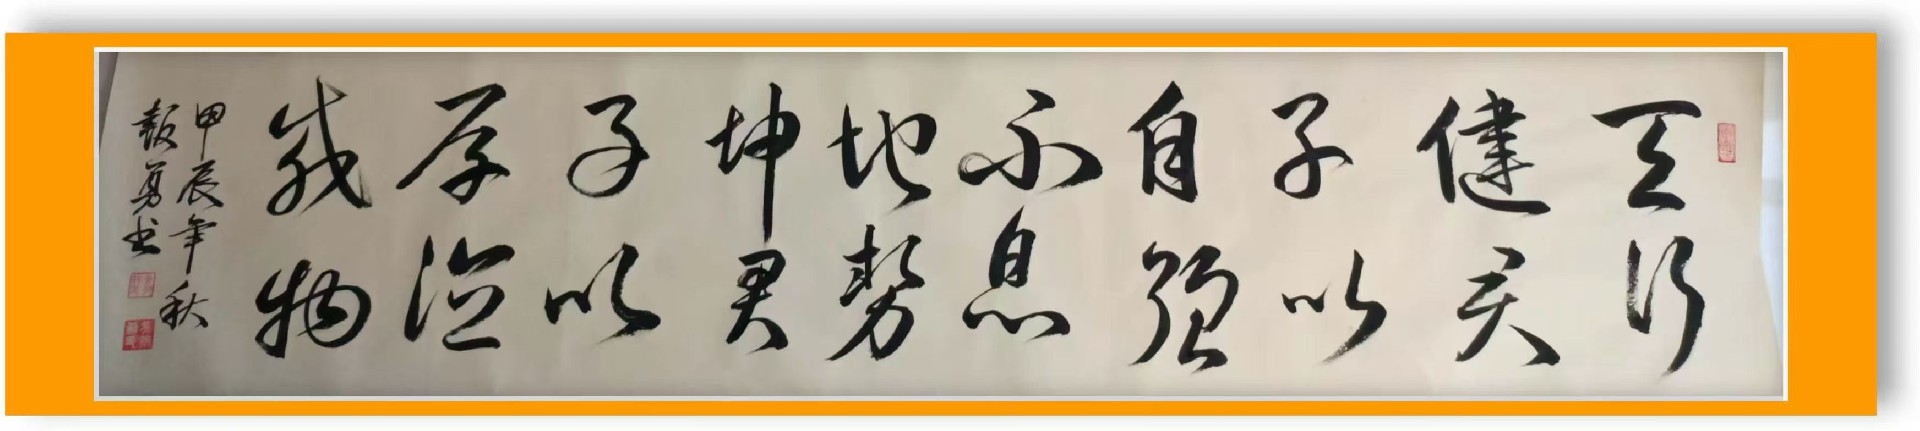 天行
健君
子以
自强
不息
地势
坤君
子以
厚德
载物
甲辰年秋
勇书